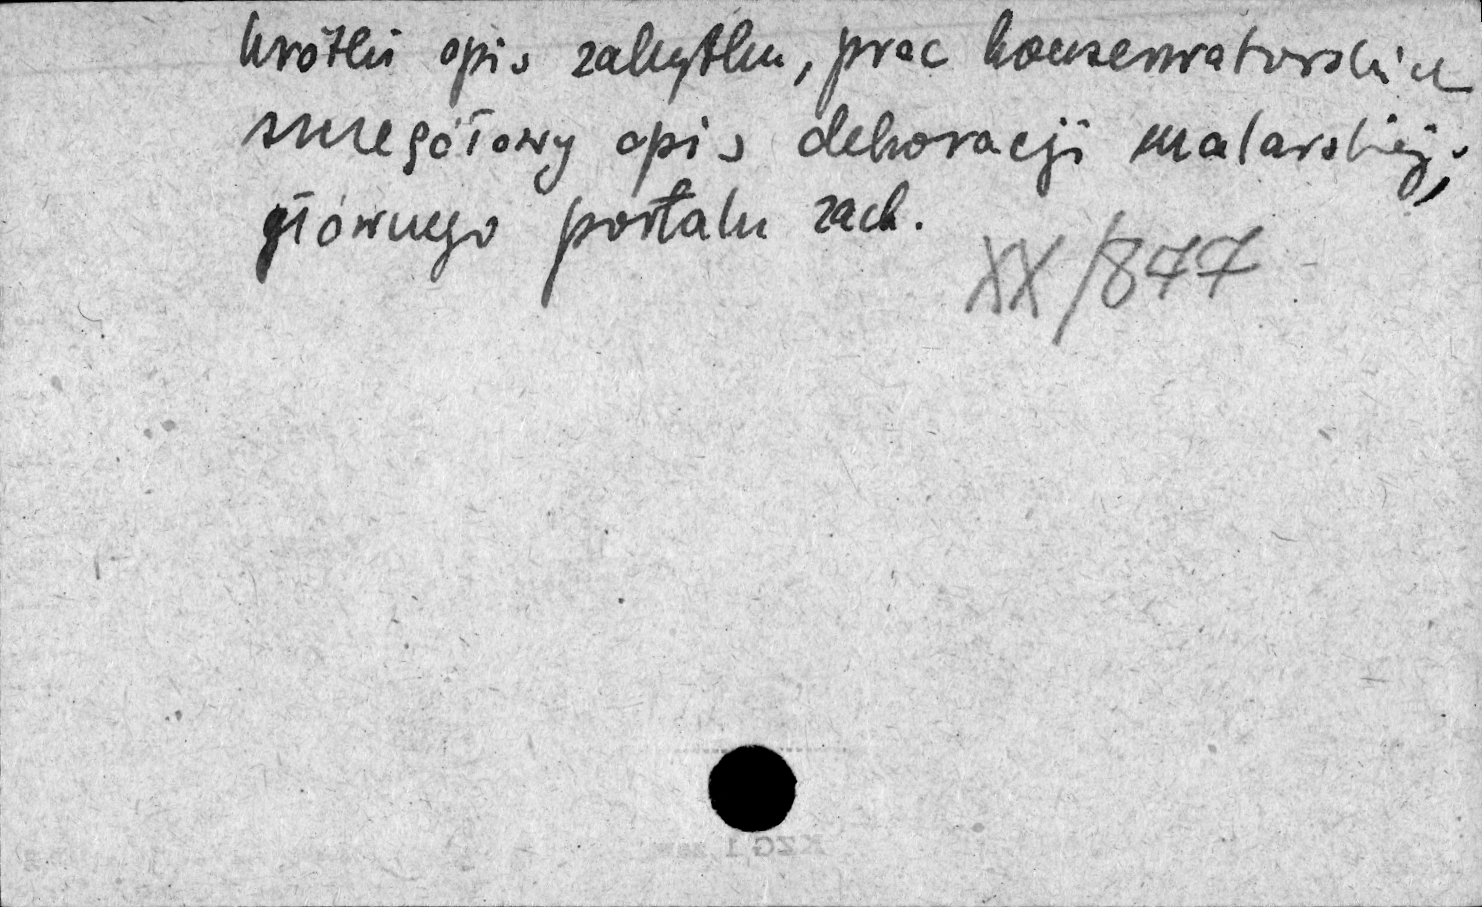 krótki opis zabytku, prac konserwatorskich
szczegółowy opis dekoracji malarskiej;
głównego portalu zach.
XX/877